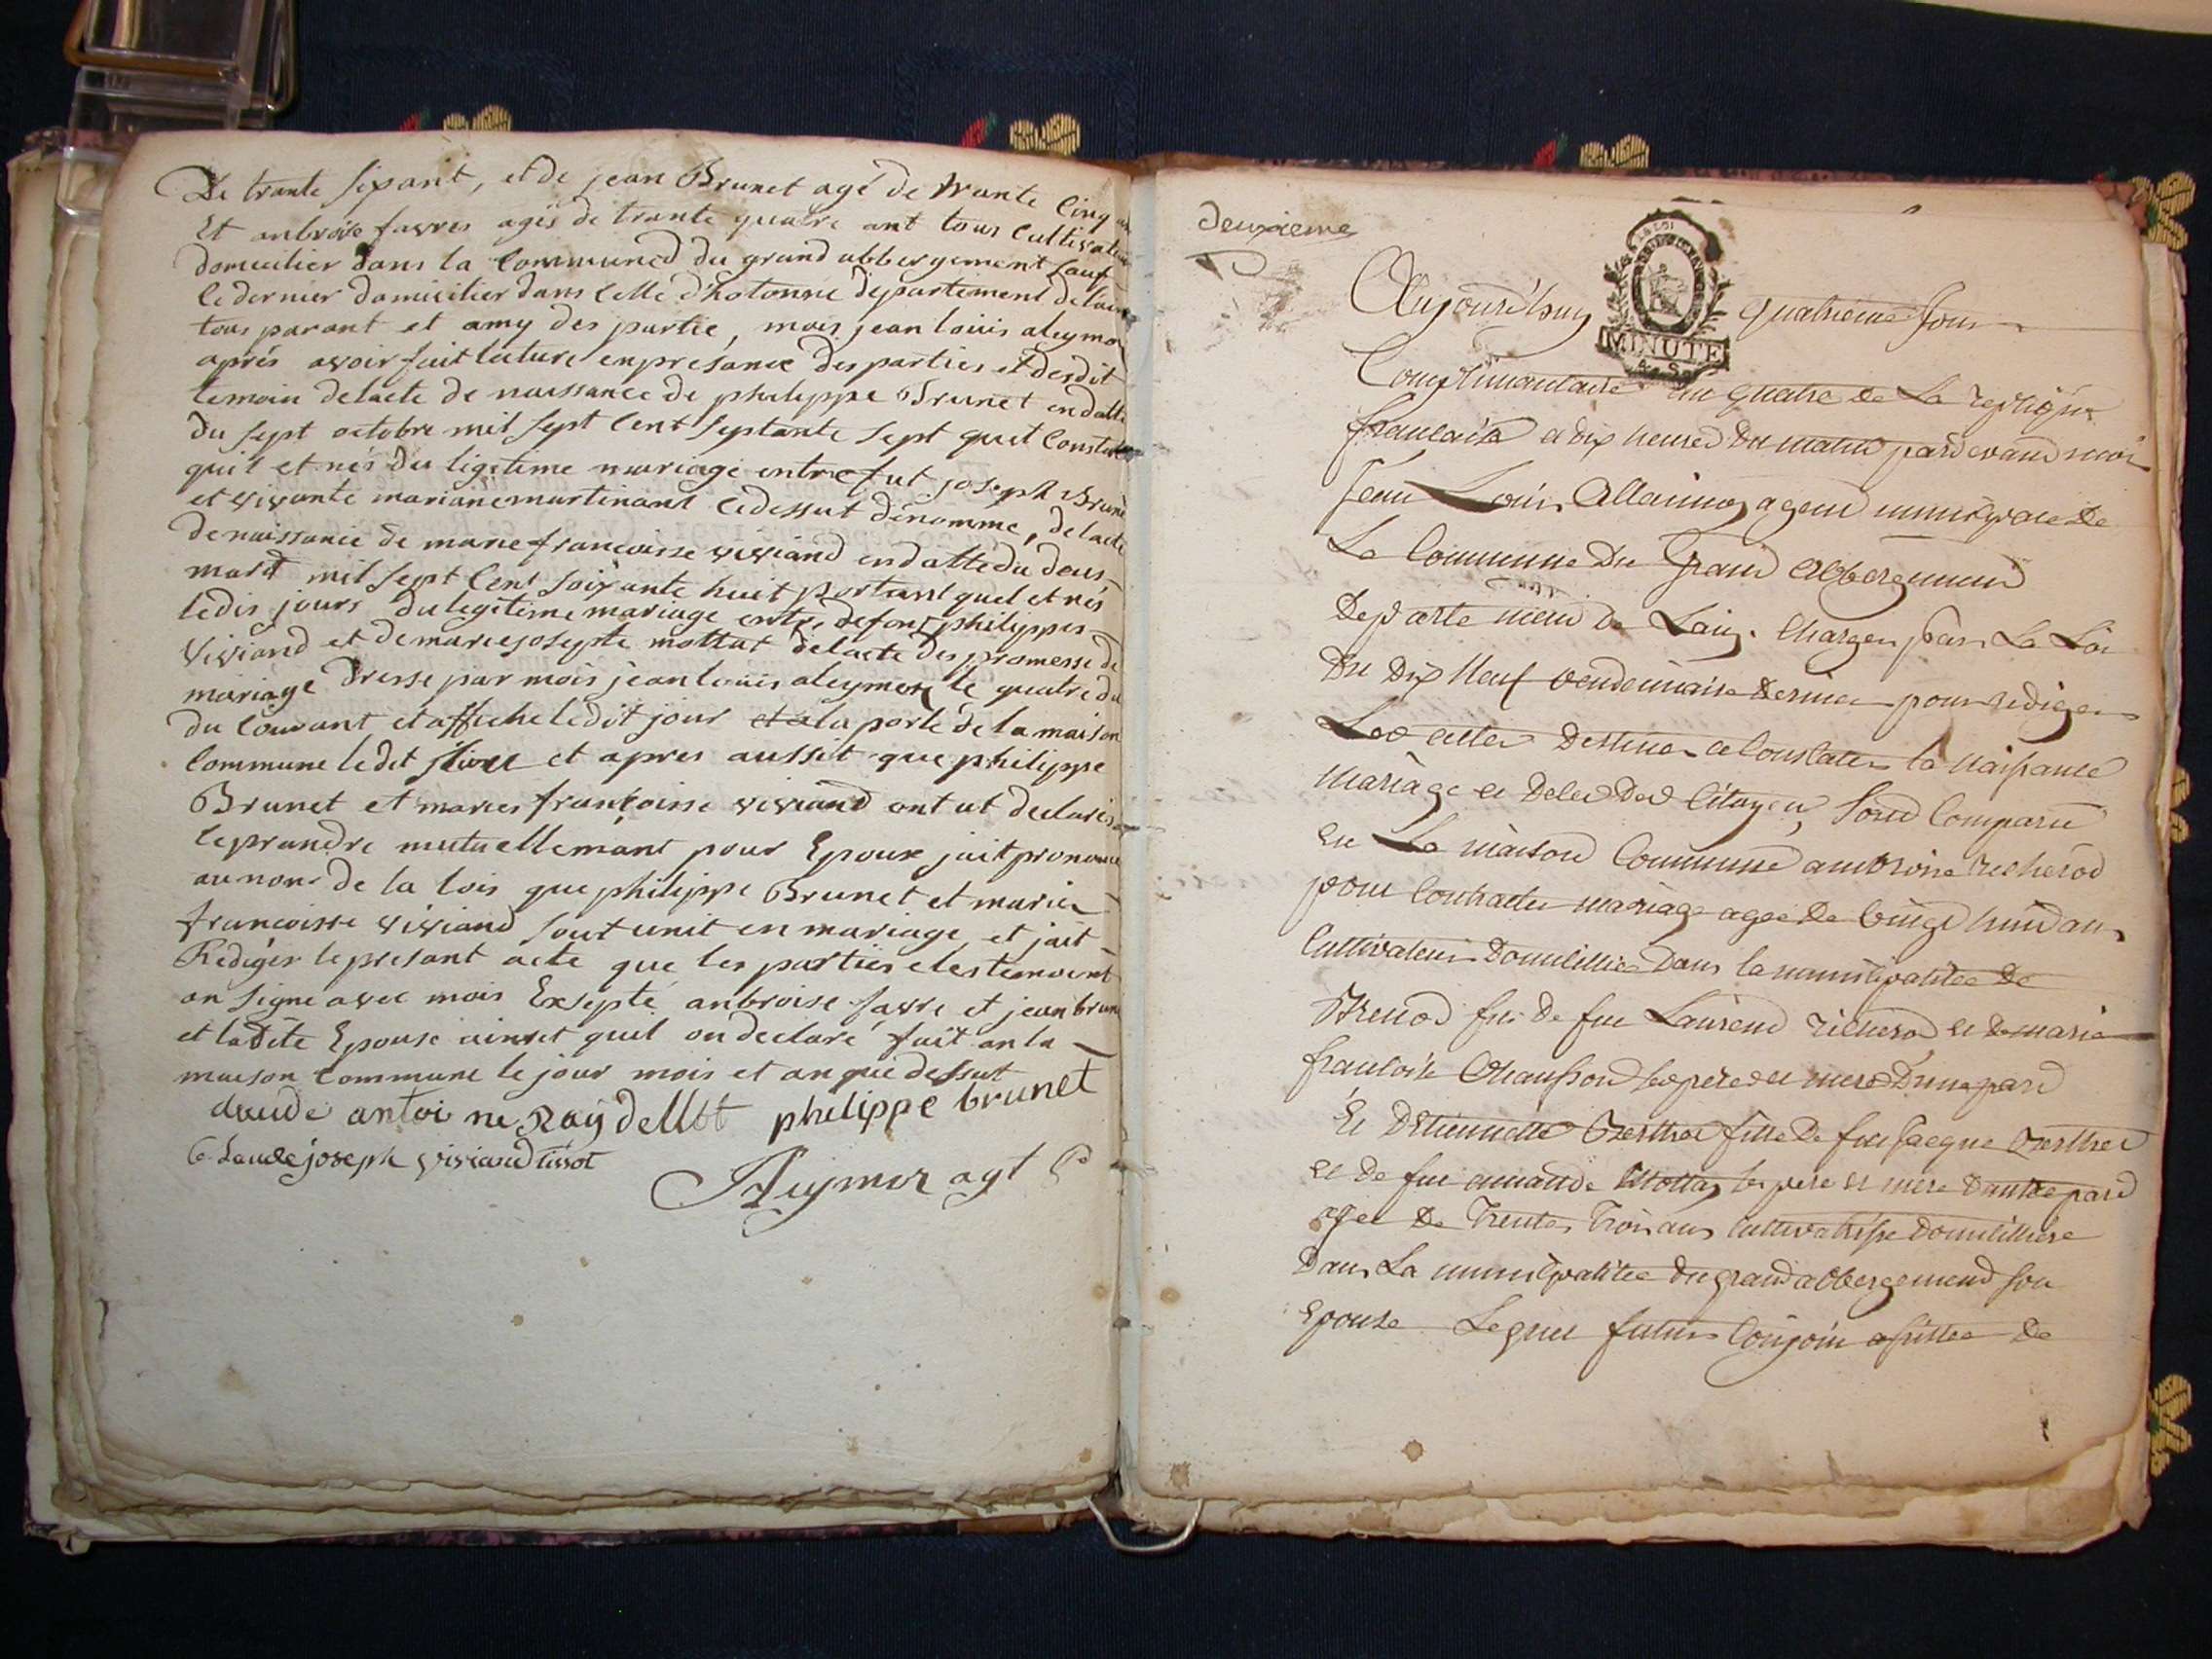 De trante sixant, et de jean Brunet agé de trante cinq an
Et anbroise favres agés de trante quatre ant tous cultivateur
domicilier dans la communed du grand abbergement sauf
le dernier domicilier dans celle d'hotonne département delain
tous parant et amy des partie, mois jean louis aleymoz
aprés avoir fait lecture en présance des parties et desdit
temoin delacte de naissance de philippe Brunet en datte
du sept octobre mil sept cent septante sept quit constate
quil et nés du ligitime mariage entre fut joseph Brunet
et vivante mariane martinand cedessut dénommé, delacte
de naissance de marie francoisse viviand en datte du deus
mars mil sept cent soixante huit portant quel et nés
ledis jours du legitime mariage entre defont philippes
viviand et de marie josepte mottat delacte des promesse de
mariage dresse par mois jean louis aleymoz le quatre du
du courant et affiche ledit jour et a la porte de la maison
commune ledit jour et apres aussit que philippe
Brunet et maries françoisse viviand ont ut declarés
le prandre mutuellemant pour Epoux jait prononcé
aunom de la lois que philippe Brunet et marie
francoisse viviand sont unit en mariage et jait
Rediger le presant acte que les parties eles temoient
on signe avec mois Exsepté anbroise favre et jean brunet
et ladite Epouse ainset quel on declaré fait an la
maison commune le jour mois et an que dessut
claude antoine Raydellet philippe brunet
Claude joseph viviand tissot
Aleymoz agt
deuxieme
MINUTE
Aujourd'huy quatrieme Jour
Complimantaire an quatre de La republique
francaise a dix heures du matin pardevand moi
Jean Louis Alleimoz agend municipale De
La Commune Du Grand Abbergemend
Departemend De Lain. Charger par La Loi
Du Dix Neuf vendemiaire Dernier pour rediger
Les actes Destiner a Constater la Naissance
Mariage et Deces Des Citoyen, Sond Comparu
En La maison Commune ambroise richerod
pour Contracter mariage agee De Vingt huid ans
Cultivateur Domicilliee Dans la municipalitee De
Brenod fis De fue Laurend richerod et De marie
francoise Chausson Ses pere et mere D'une pard
Et D'Etiennette Berthet fille De fue Jacque Berthet
et De fue Mottaz les pere et mere D'autre pard
agee De Trente Trois ans Cultivatrisse Domicilliere
Dans La municipalitee Du grand abbergemend son
Epouse Lequel futur Conjoin assistee De